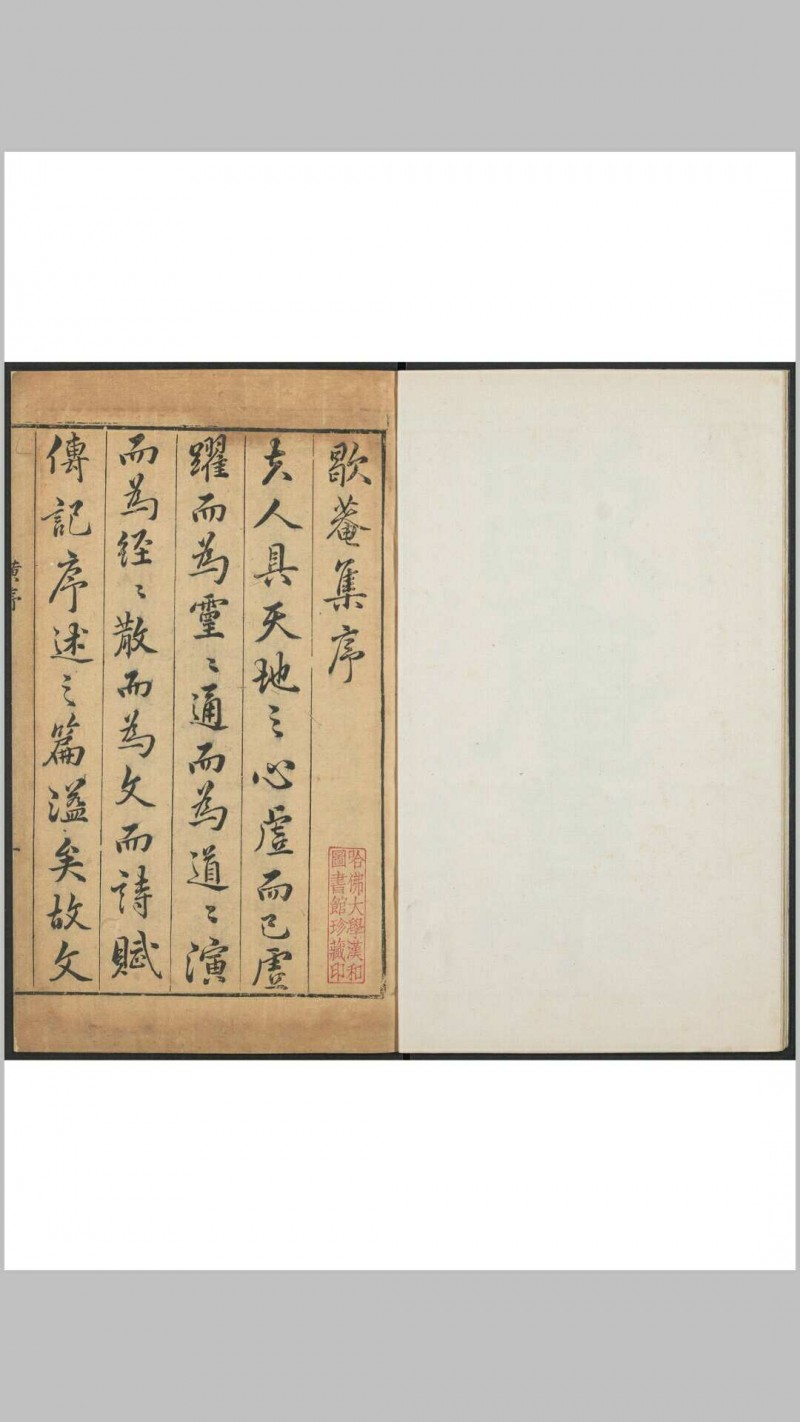 歇菴集序
夫人具天地之心虛而已虛
躍而為靈〻通而為道〻演
而為經〻散而為文而詩賦
傳記序述之篇溢矣故文
哈佛大學漢和
圖書館珍藏印
黃序